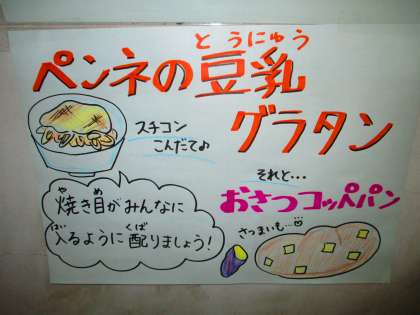 とうにゅう
ペンネの豆乳
グラタン
スチコン
こんだて♪
それと…
おさつコッペパン
さつまいも…
や め
焼き目がみんなに
はい くば
入るように配りましょう!